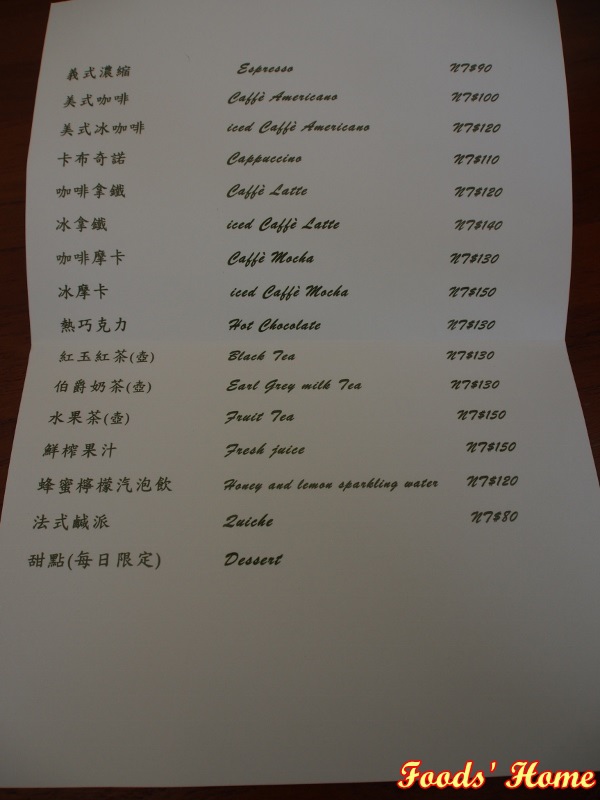 義式濃縮 Espresso NT$90
美式咖啡 Caffè Americano NT$100
美式冰咖啡 iced Caffè Americano NT$120
卡布奇諾 Cappuccino NT$110
咖啡拿鐵 Caffè Latte NT$120
冰拿鐵 iced Caffè Latte NT$140
咖啡摩卡 Caffè Mocha NT$130
冰摩卡 iced Caffè Mocha NT$150
熱巧克力 Hot Chocolate NT$130
紅玉紅茶(壺) Black Tea NT$130
伯爵奶茶(壺) Earl Grey milk Tea NT$130
水果茶(壺) Fruit Tea NT$150
鮮榨果汁 Fresh juice NT$150
蜂蜜檸檬汽泡飲 Honey and lemon sparkling water NT$120
法式鹹派 Quiche NT$80
甜點(每日限定) Dessert
Foods' Home